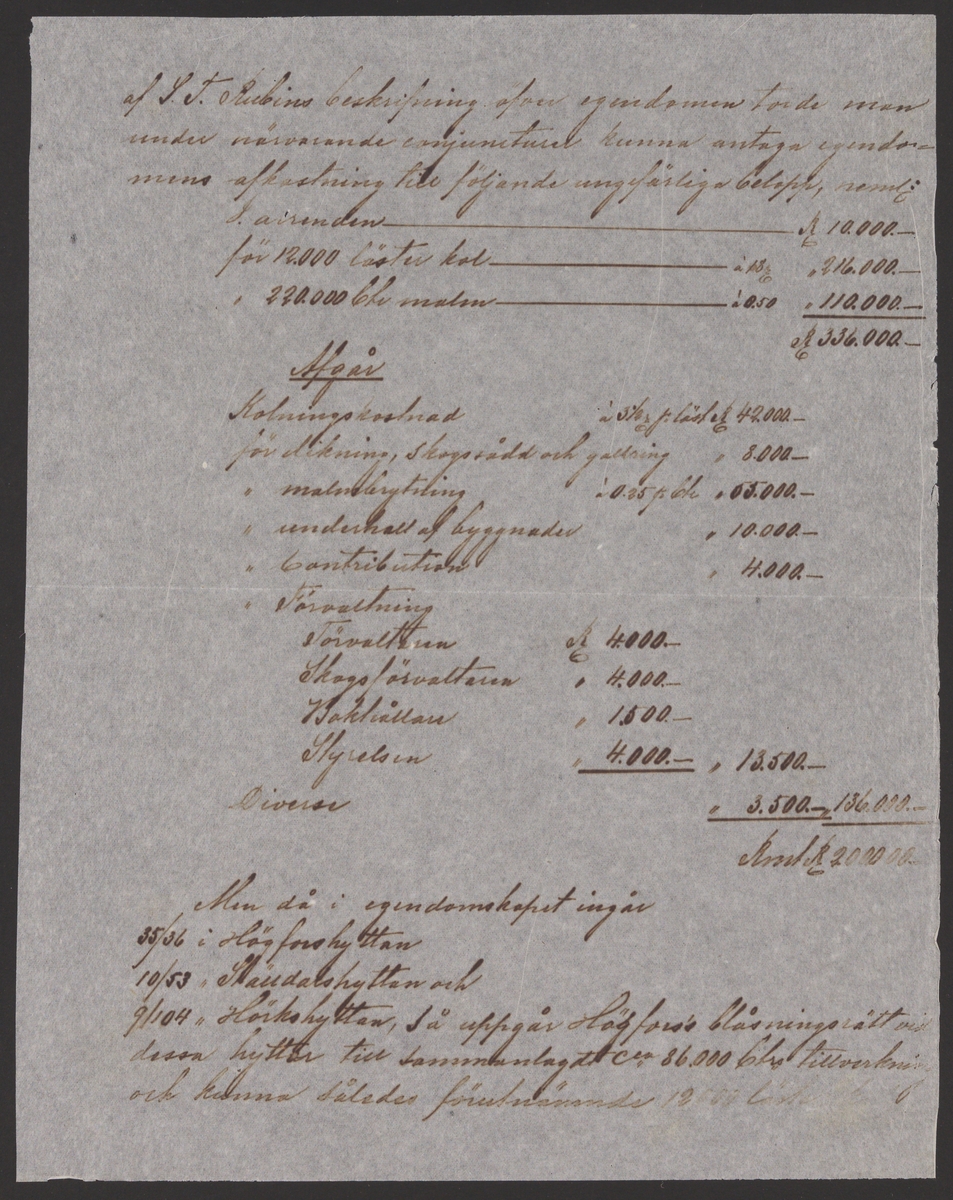 af S. T. Rubins beskrifning öfver egendomen torde man
under närvarande conjuncturer kunna antaga egendo-
mens afkastning till följande ungefärliga belopp, neml:
I arrenden R 10.000.—
för 12.000 läster kol à 18 „ 216.000.—
„ 220.000 Ctr malm à 0.50 „ 110.000.—
R 336.000.—
Afgår
Kolningskostnad à 3½ p. läst R 42.000.—
för dikning, skogssådd och gallring „ 8.000.—
„ malmbrytning à 0.25 p. Ctr „ 55.000.—
„ underhåll af byggnader „ 10.000.—
„ Contribution „ 4.000.—
„ Förvaltning
Förvaltaren R 4.000.—
Skogsförvaltaren „ 4.000.—
Bokhållare „ 1.500.—
Styrelsen „ 4.000.— „ 13.500.—
Diverse „ 3.500.— „ 136.000.—
Rmt R 200000.—
Men då i egendomsköpet ingår
35/36 i Högforshyttan
10/53 „ Ställdalshyttan och
9/104 „ Hörkshyttan, så uppgår Högfors's blåsningsrätt vid
dessa hyttor till sammanlagdt cca 86.000 Ctrs tillverkning
och kunna således förutnämnde 12000 läster